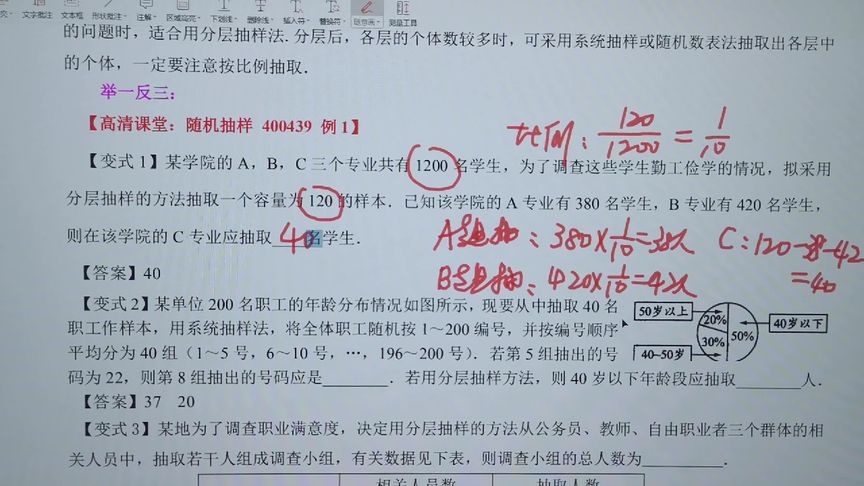 文字批注 文本框 形状批注 注解 区域高亮 下划线 删除线 插入符 替换符 随意画 测量工具
的问题时，适合用分层抽样法. 分层后，各层的个体数较多时，可采用系统抽样或随机数表法抽取出各层中
的个体，一定要注意按比例抽取.
举一反三：
【高清课堂：随机抽样 400439 例1】
比例：120/1200 = 1/10
【变式 1】某学院的 A，B，C 三个专业共有 1200 名学生，为了调查这些学生勤工俭学的情况，拟采用
分层抽样的方法抽取一个容量为 120 的样本．已知该学院的 A 专业有 380 名学生，B 专业有 420 名学生，
则在该学院的 C 专业应抽取 40 名学生．
A组抽：380×1/10=38人 C：120-38-42
【答案】40
B组抽：420×1/10=42人 =40
【变式 2】某单位 200 名职工的年龄分布情况如图所示，现要从中抽取 40 名
职工作样本，用系统抽样法，将全体职工随机按 1～200 编号，并按编号顺序
平均分为 40 组（1～5 号，6～10 号，…，196～200 号）．若第 5 组抽出的号
50岁以上 20% 50% 40岁以下
40-50岁 30%
码为 22，则第 8 组抽出的号码应是________．若用分层抽样方法，则 40 岁以下年龄段应抽取________人．
【答案】37 20
【变式 3】某地为了调查职业满意度，决定用分层抽样的方法从公务员、教师、自由职业者三个群体的相
关人员中，抽取若干人组成调查小组，有关数据见下表，则调查小组的总人数为__________．
相关人员数 抽取人数